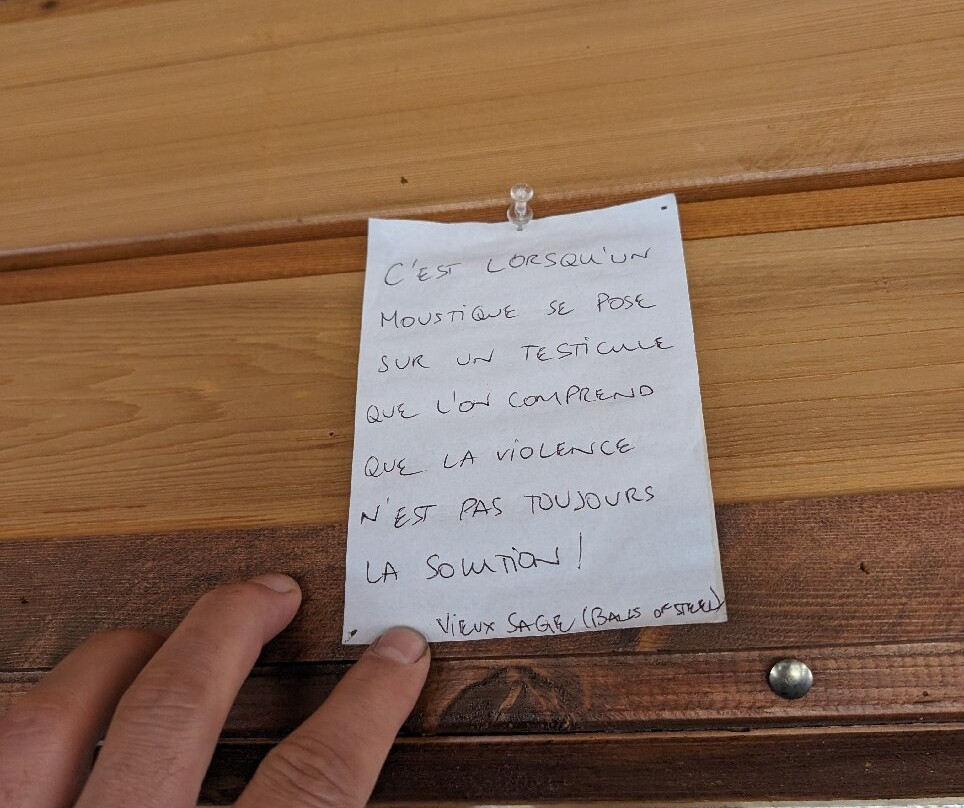 C'EST LORSQU'UN
MOUSTIQUE SE POSE
SUR UN TESTICULE
QUE L'ON COMPREND
QUE LA VIOLENCE
N'EST PAS TOUJOURS
LA SOLUTION !
VIEUX SAGE (BALLS OF STEEL)